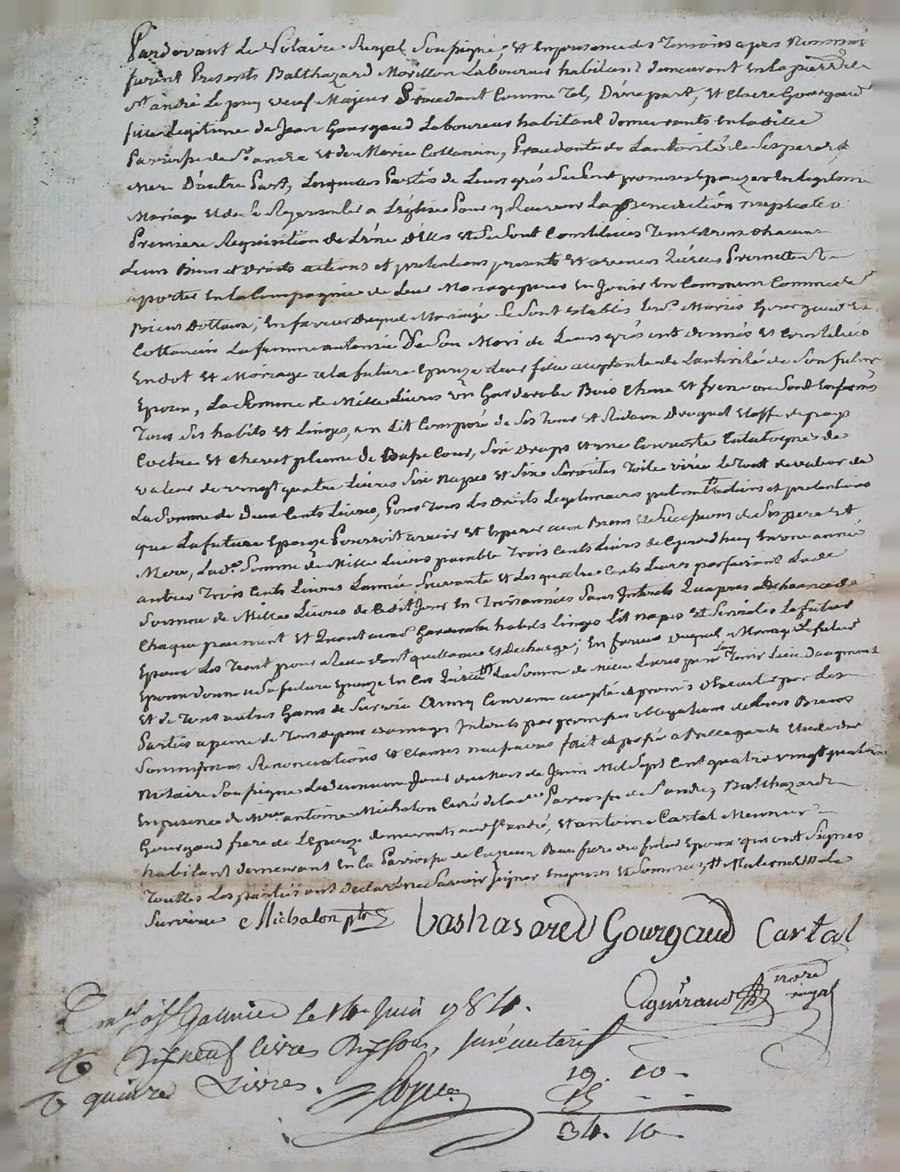 Pardevant Le Notaire Royal Soussigné, et En presence des Temoins apres Nommés
furent Presents Balthazard Morillon Laboureur habitant demeurant En la
St andré Le puy veuf Majeur Procedant Comme Tel, D'une part, et Claire Gourgaud
fille Legitime de Jean Gourgaud Laboureur habitant demeurants En la ditte
Parroisse de St andré et de Marie Cottancin, Procedante de L'autorité de Ses pere et
Mere D'autre Part, Lesquelles Parties de Leurs grés Se Sont promises Epouzer En Legitime
Mariage et de Se Representer a L'église Pour y Recevoir La Benediction nuptiale a
Premiere Requisition de L'une d'Elles et Se Sont Constitués Tous
Leurs Biens et Droits actions et pretentions presents et avenir Promettent
aporter En la Compagnie de Leur Mariage pour En Jouir En Commun Comme de
Biens Dottaux; En faveur duquel Mariage Se Sont Etablis Mariés Gourgaud et
Cottancin La femme autorisée De Son Mari de Leurs grés ont donnés et Constitués
En dot et Mariage a la future Epouze Leur fille acceptante de L'autorité de Son futur
Epoux, La Somme de Mille Livres un Garderobe Bois Chene et frene
Tous Ses habits et Linges, un Lit Composé de Ses Tour et Rideaux Droguet Etoffe de pays
Coetre et Chevet plume de Basse Cour, Six Draps et une Couverte Catalogne de
valeur de vingt quatre Livres Six Napes et Six Serviettes Toile Le Tout de valeur de
La Somme de Deux Cents Livres, Pour Tous Les Droits Legitimaires et pretentions
que La future Epouze Pourroit avoir et Esperer aux Biens et Successions de Ses pere et
Mere, Lade Somme de Mille Livres payable Trois Cents Livres de Ce jourd'huy En une année
autres Trois Cents Livres L'année Suivante et Les quatre Cents Livres parfaisant Lade
Somme de Mille Livres de Cedit Jour En Trois années Sans Interets Qu'apres Echeance de
Chaque payement et Quant aux Garderobe habits Linges Lit Napes et Serviettes Le futur
Epoux Les Tient pour Recus dont quittance et decharge; En faveur duquel Mariage Le futur
Epoux donne a La future Epouze En Cas La Somme de Mille Livres pour Luy Tenir Lieu D'augment
et de Tous autres Gains de Survie Ainsy Convenu accepté et promis D'Executer par Les
Parties a peine de Tous depens Domages Interets par Obligations de Leurs Biens
Soumissions Renonciations et Clauses fait et passé a Bellegarde Etude du
Notaire Soussigné Le du Mois de Juin Mil Sept Cent quatre vingt quatre
En presence de Mre antoine Michalon Curé de lade Parroisse de St andré, Balthazard
Gourgaud frere de L'epouze demeurants aud St andré, et antoine Cartal Meunier
habitant demeurant En la Parroisse de Cuzieu Beau frere du futur Epoux qui ont Signés
Touttes Les parties ont declaré ne Savoir Signer Enquises et Sommées, La
Survivue Michalon ptre Bashasared Gourgaud Cartal
Aguiraud nore royal
St Galmier le 14 Juin 1784.
Dixneuf livres Dix Sous,
quinze Livres.
19. 10-
15 - -
34. 10-